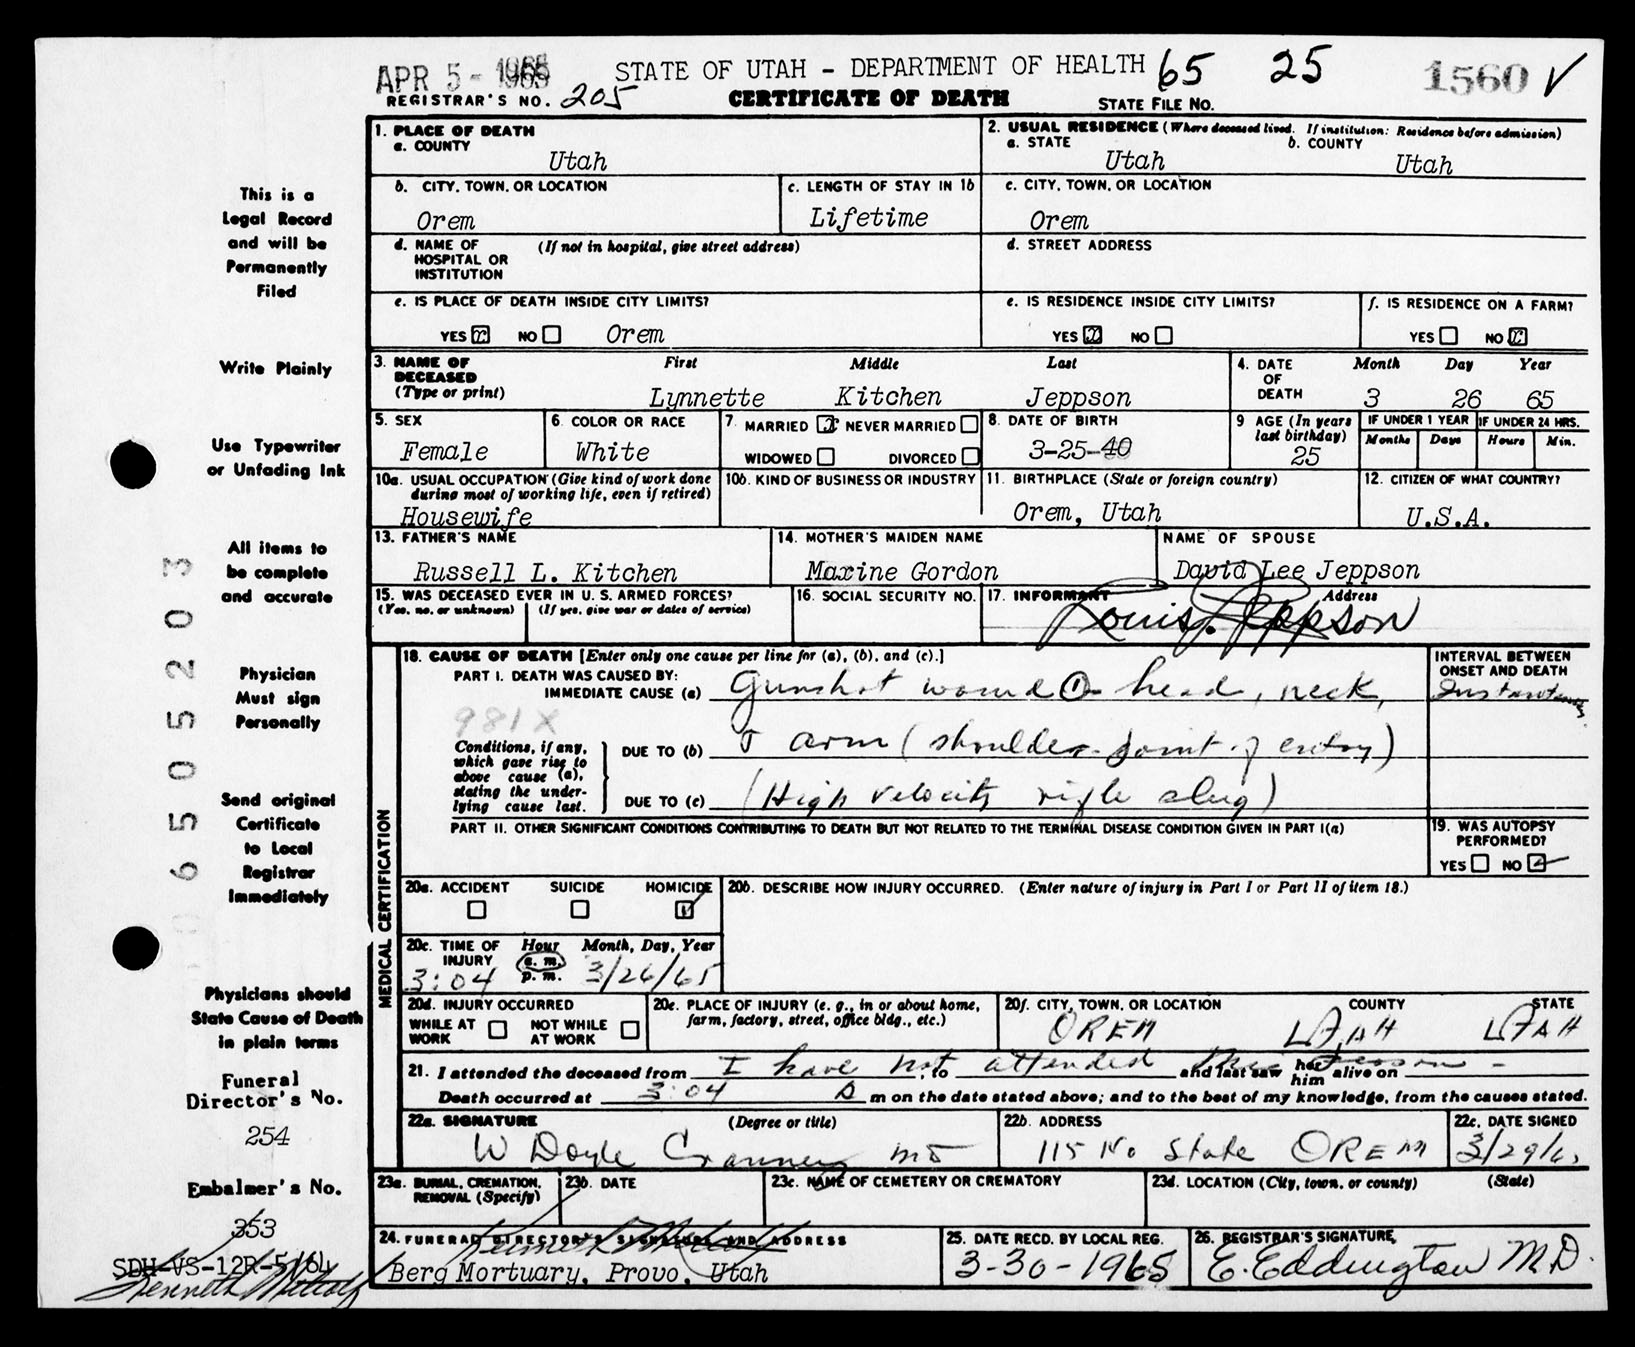 APR 5 - 1965 STATE OF UTAH - DEPARTMENT OF HEALTH 65 25 1560 ✓
REGISTRAR'S NO. 205 CERTIFICATE OF DEATH STATE FILE NO.
This is a
Legal Record
and will be
Permanently
Filed
Write Plainly
Use Typewriter
or Unfading Ink
All items to
be complete
and accurate
Physician
Must sign
Personally
Send original
Certificate
to Local
Registrar
Immediately
Physicians should
State Cause of Death
in plain terms
Funeral
Director's No.
254
Embalmer's No.
353
SDH-VS-12R-5/64
6505203
1. PLACE OF DEATH
a. COUNTY
Utah
2. USUAL RESIDENCE (Where deceased lived. If institution: Residence before admission)
a. STATE b. COUNTY
Utah Utah
b. CITY, TOWN, OR LOCATION
Orem
c. LENGTH OF STAY IN 1b
Lifetime
c. CITY, TOWN, OR LOCATION
Orem
d. NAME OF (If not in hospital, give street address)
HOSPITAL OR
INSTITUTION
d. STREET ADDRESS
e. IS PLACE OF DEATH INSIDE CITY LIMITS?
YES x NO Orem
e. IS RESIDENCE INSIDE CITY LIMITS?
YES x NO
f. IS RESIDENCE ON A FARM?
YES NO x
3. NAME OF First Middle Last
DECEASED
(Type or print) Lynnette Kitchen Jeppson
4. DATE Month Day Year
OF
DEATH 3 26 65
5. SEX
Female
6. COLOR OR RACE
White
7. MARRIED x NEVER MARRIED
WIDOWED DIVORCED
8. DATE OF BIRTH
3-25-40
9 AGE (In years
last birthday)
25
IF UNDER 1 YEAR IF UNDER 24 HRS.
Months Days Hours Min.
10a. USUAL OCCUPATION (Give kind of work done
during most of working life, even if retired)
Housewife
10b. KIND OF BUSINESS OR INDUSTRY
11. BIRTHPLACE (State or foreign country)
Orem, Utah
12. CITIZEN OF WHAT COUNTRY?
U.S.A.
13. FATHER'S NAME
Russell L. Kitchen
14. MOTHER'S MAIDEN NAME
Maxine Gordon
NAME OF SPOUSE
David Lee Jeppson
15. WAS DECEASED EVER IN U. S. ARMED FORCES?
(Yes, no, or unknown) (If yes, give war or dates of service)
16. SOCIAL SECURITY NO.
17. INFORMANT Address
Louis J. Jeppson
MEDICAL CERTIFICATION
18. CAUSE OF DEATH [Enter only one cause per line for (a), (b), and (c).]
PART I. DEATH WAS CAUSED BY:
IMMEDIATE CAUSE (a) Gunshot wound head, neck,
981X
Conditions, if any,
which gave rise to
above cause (a),
stating the under-
lying cause last.
DUE TO (b) arm (shoulder-point of entry)
DUE TO (c) (High velocity rifle slug)
INTERVAL BETWEEN
ONSET AND DEATH
PART II. OTHER SIGNIFICANT CONDITIONS CONTRIBUTING TO DEATH BUT NOT RELATED TO THE TERMINAL DISEASE CONDITION GIVEN IN PART I(a)
19. WAS AUTOPSY
PERFORMED?
YES NO ✓
20a. ACCIDENT SUICIDE HOMICIDE ✓
20b. DESCRIBE HOW INJURY OCCURRED. (Enter nature of injury in Part I or Part II of item 18.)
20c. TIME OF Hour Month, Day, Year
INJURY a. m.
3:04 p. m. 3/26/65
20d. INJURY OCCURRED
WHILE AT WORK NOT WHILE AT WORK
20e. PLACE OF INJURY (e. g., in or about home,
farm, factory, street, office bldg., etc.)
20f. CITY, TOWN, OR LOCATION COUNTY STATE
OREM UTAH UTAH
21. I attended the deceased from I have not, to attended this and last saw her him alive on person -
Death occurred at 3:04 a m on the date stated above; and to the best of my knowledge, from the causes stated.
22a. SIGNATURE (Degree or title)
W Doyle Cranney MD
22b. ADDRESS
115 No State OREM
22c. DATE SIGNED
3/29/65
23a. BURIAL, CREMATION,
REMOVAL (Specify)
23b. DATE
23c. NAME OF CEMETERY OR CREMATORY
23d. LOCATION (City, town, or county) (State)
24. FUNERAL DIRECTOR'S SIGNATURE AND ADDRESS
Berg Mortuary, Provo, Utah
25. DATE RECD. BY LOCAL REG.
3-30-1965
26. REGISTRAR'S SIGNATURE
E. Eddington M.D.